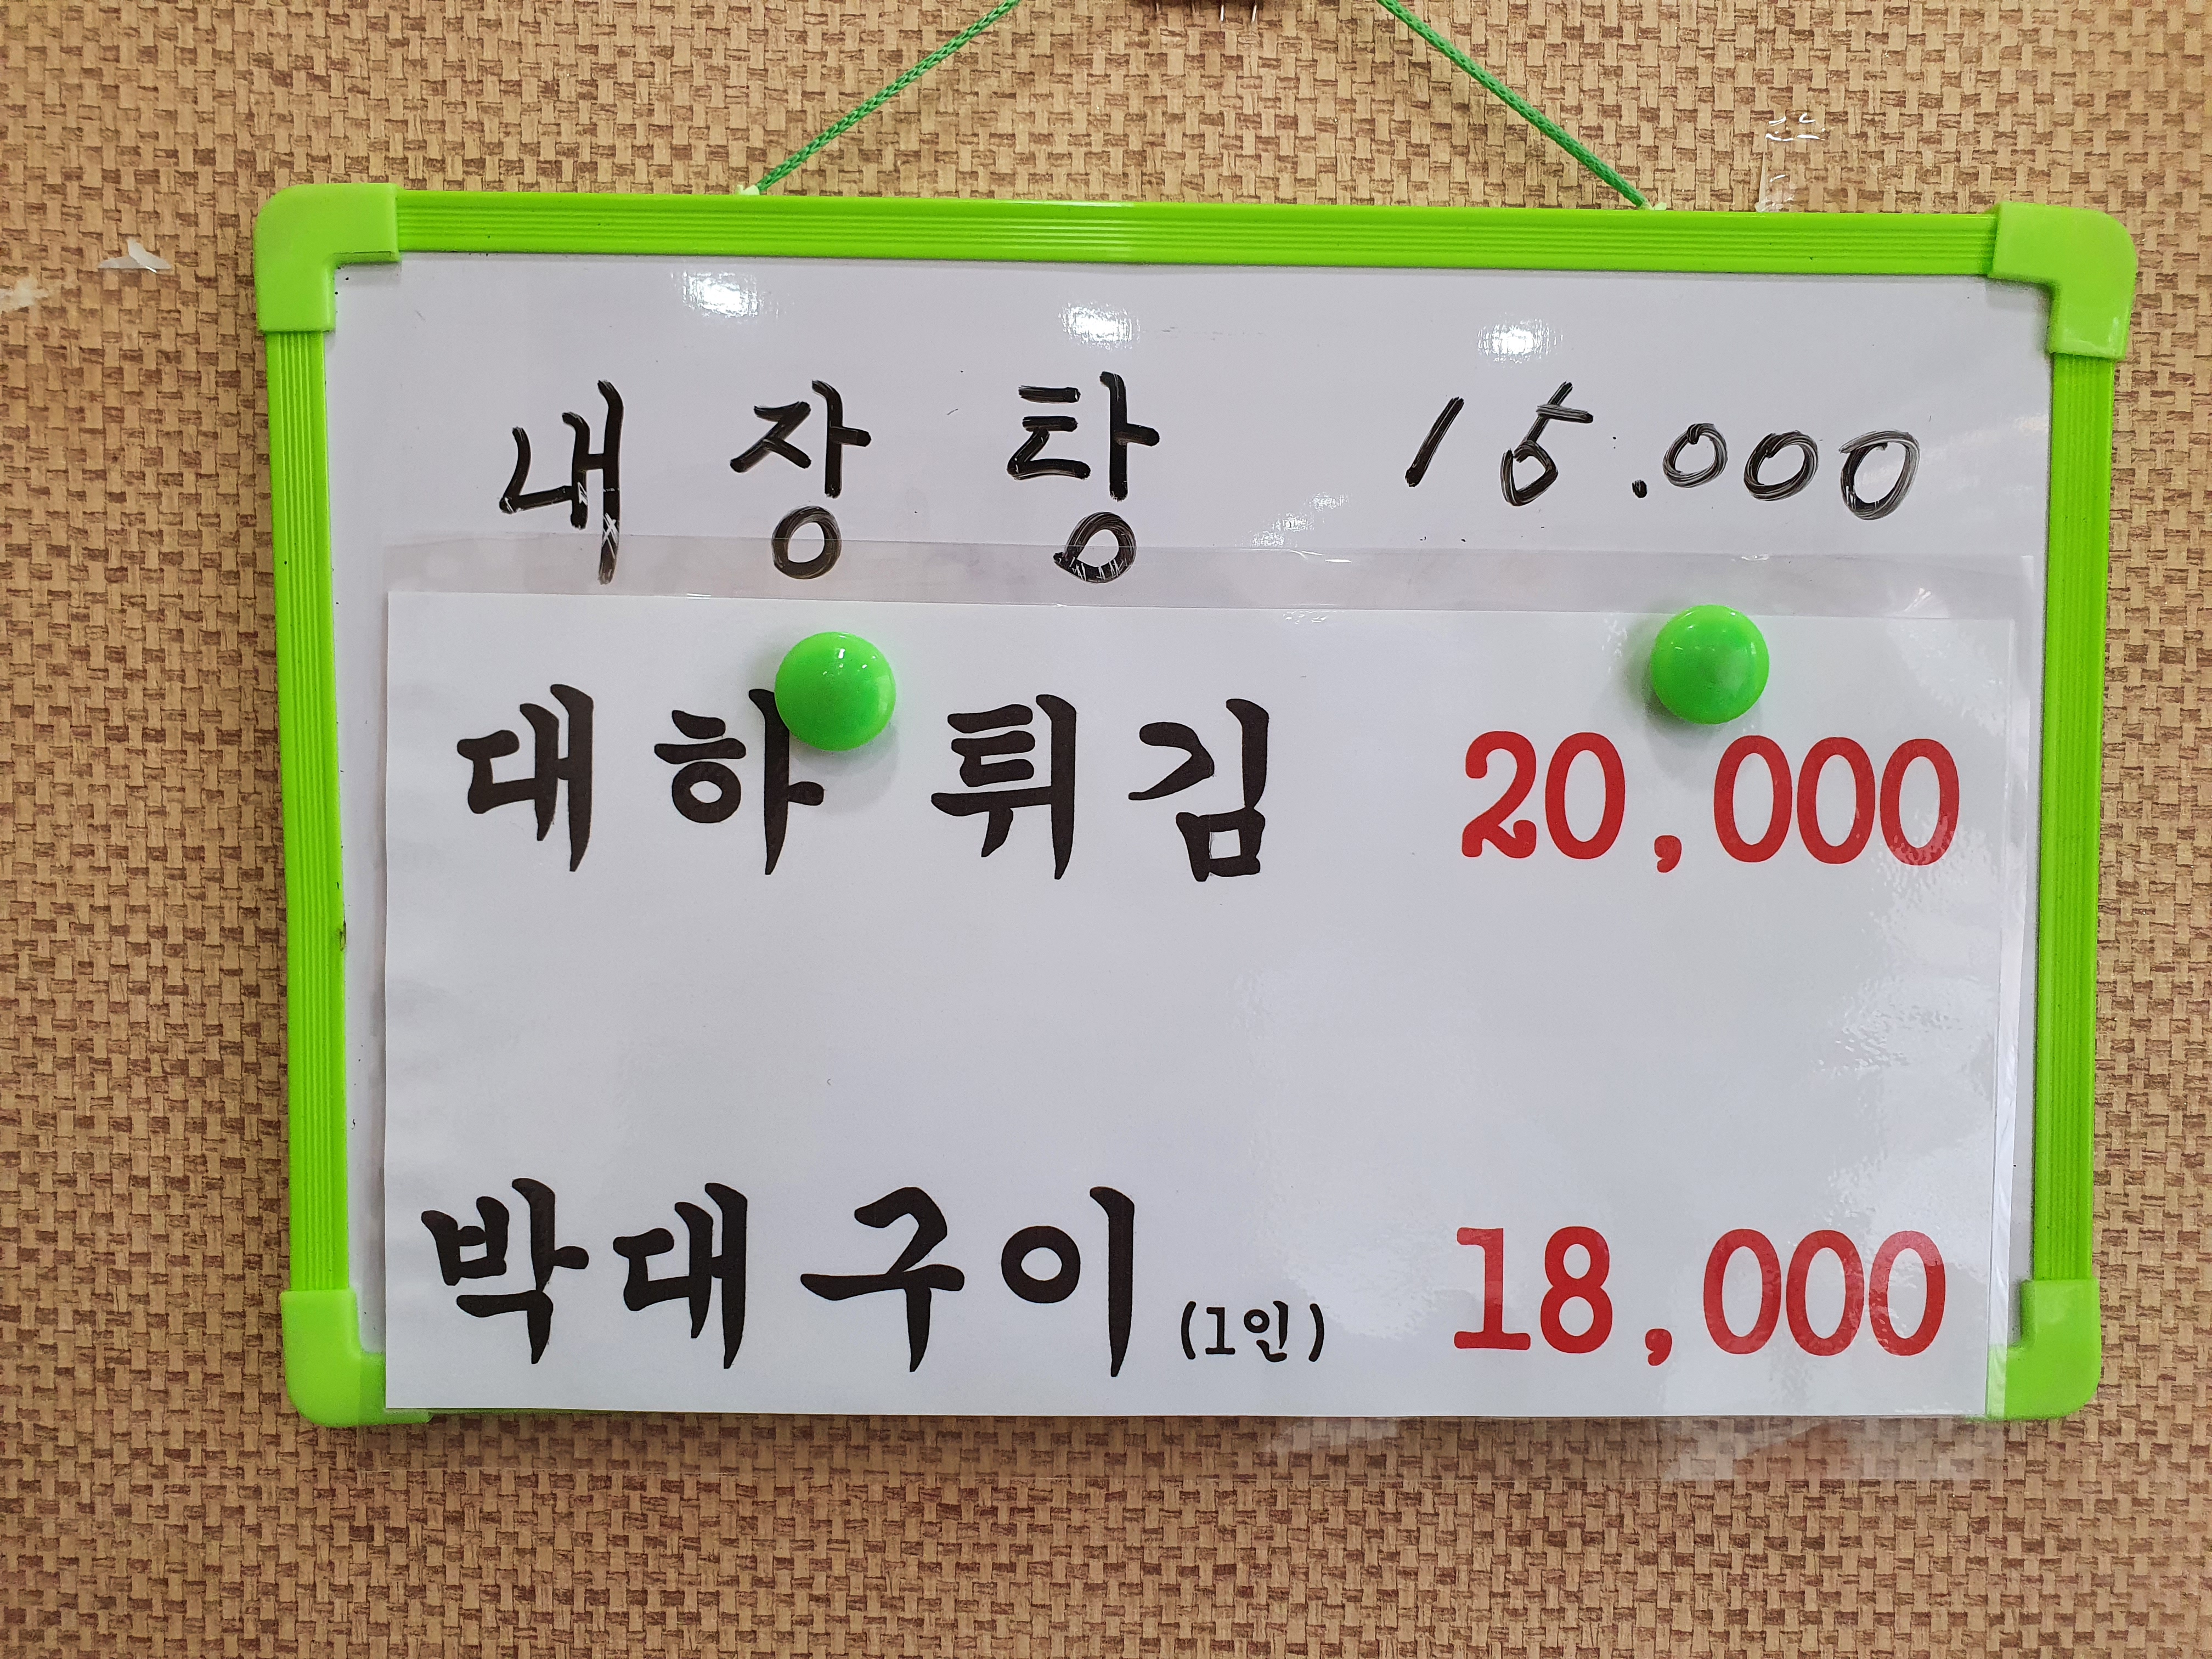 내장탕 15.000
대하 튀김 20,000
박대구이 (1인) 18,000